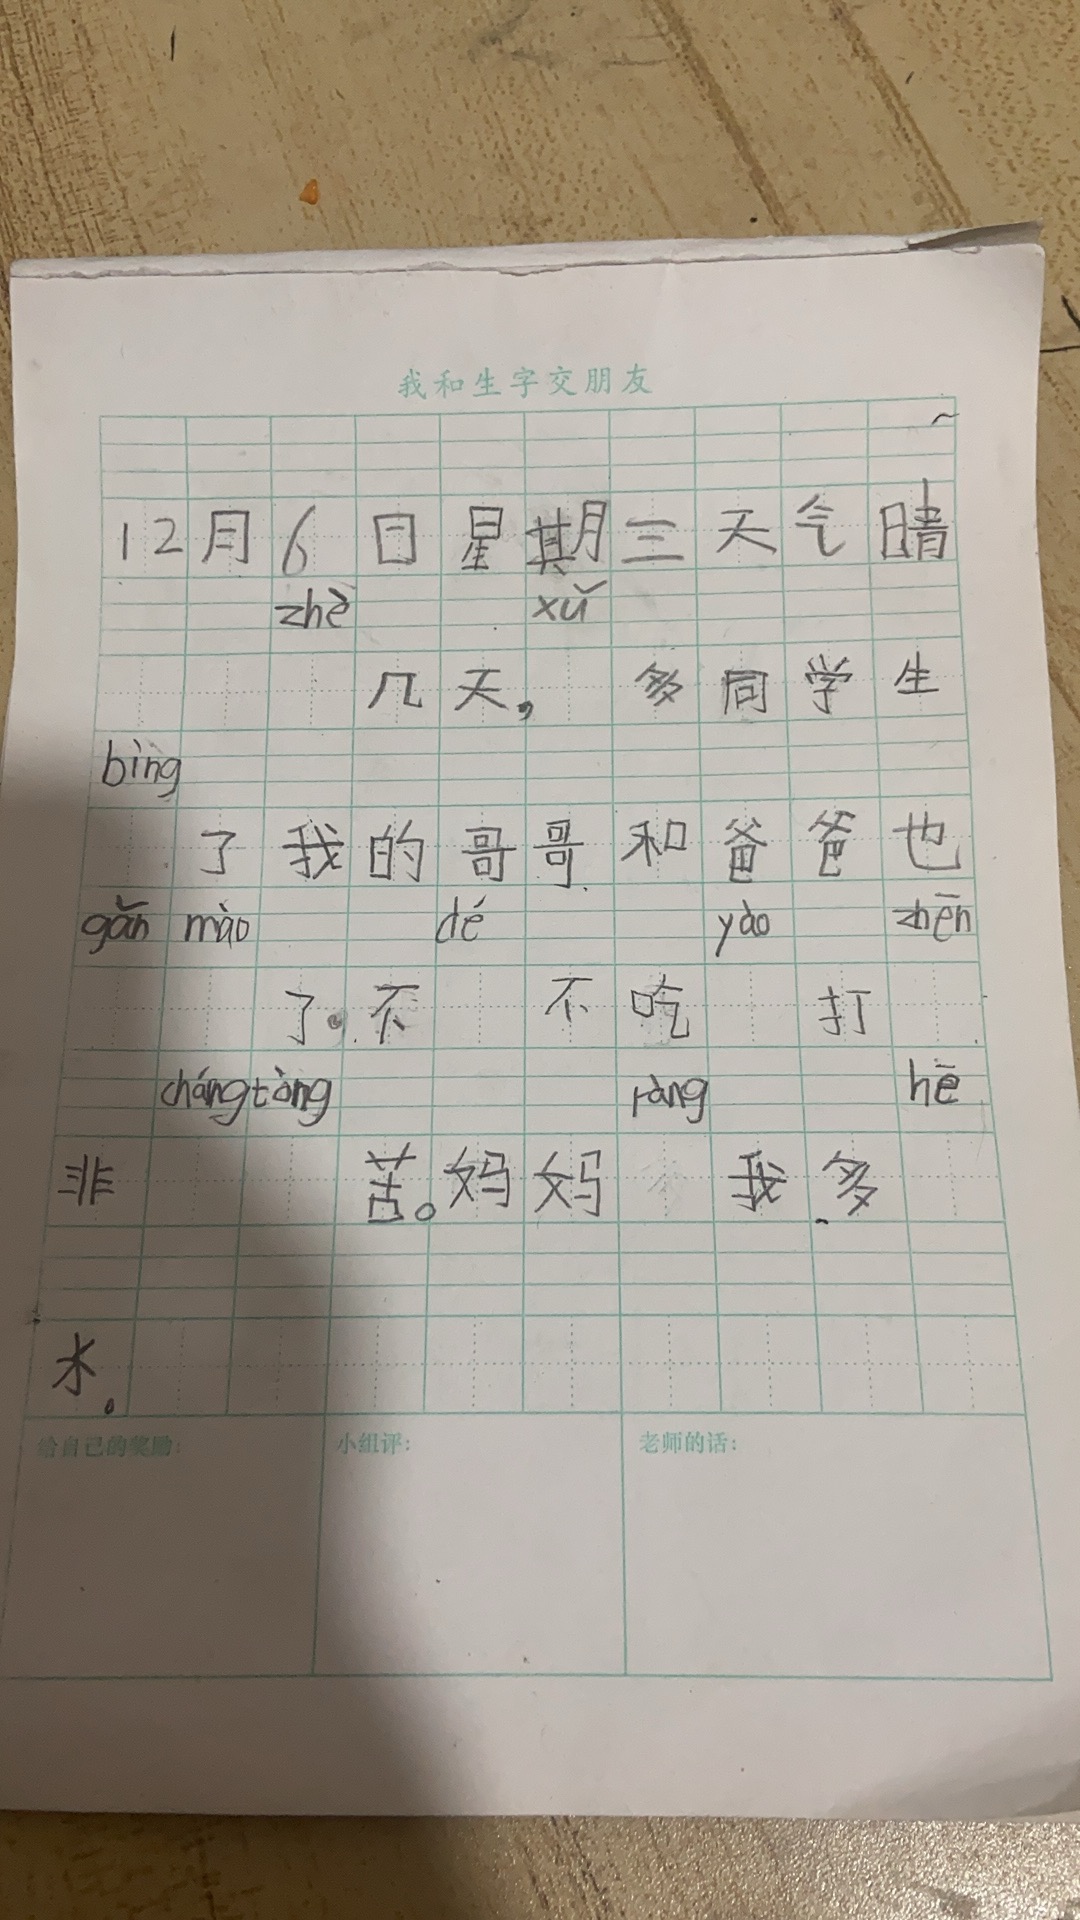 我和生字交朋友
12月6日星期三天气晴
zhè xǔ
几天，多同学生
bìng
了我的哥哥和爸爸也
gǎn mào dé yào zhēn
了。不不吃打
cháng tòng ràng hē
非苦。妈妈我多
水。
给自己的奖励： 小组评： 老师的话：